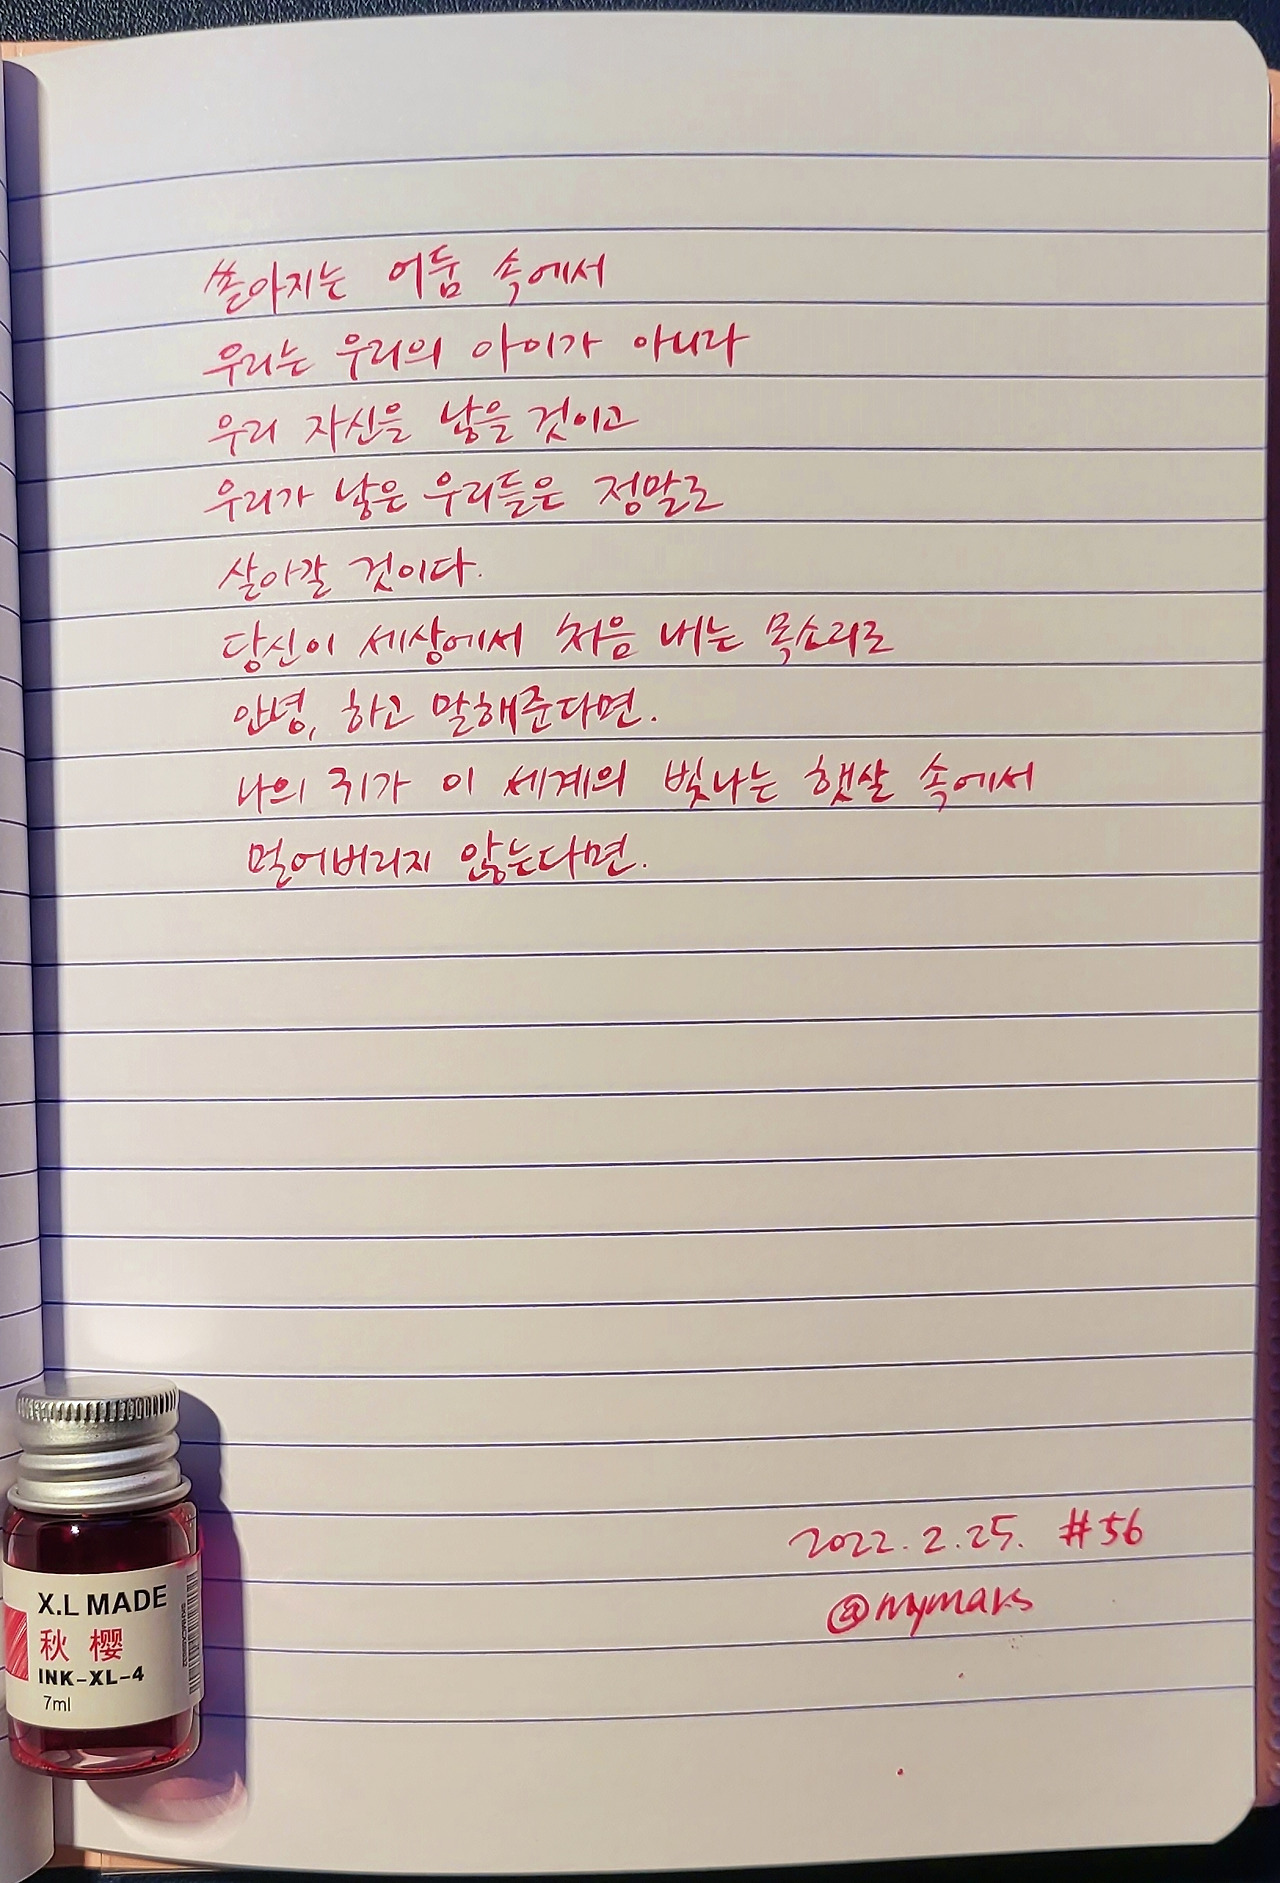 쏟아지는 어둠 속에서
우리는 우리의 아이가 아니라
우리 자신을 낳을 것이고
우리가 낳은 우리들은 정말로
살아갈 것이다.
당신이 세상에서 처음 내는 목소리로
안녕, 하고 말해준다면.
나의 귀가 이 세계의 빛나는 햇살 속에서
멀어버리지 않는다면.
2022.2.25. #56
@mymars
X.L MADE
秋 樱
INK-XL-4
7ml